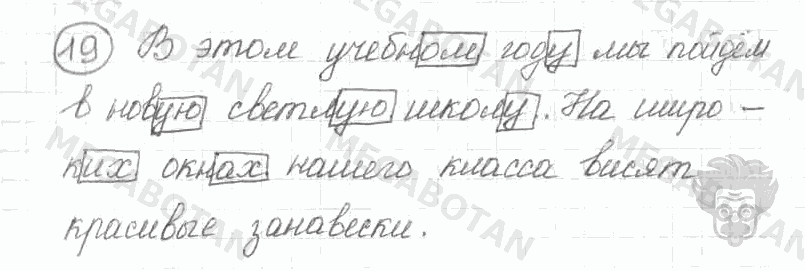 19 В этом учебном году мы пойдём
в новую светлую школу. На широ-
ких окнах нашего класса висят
красивые занавески.
MEGABOTAN